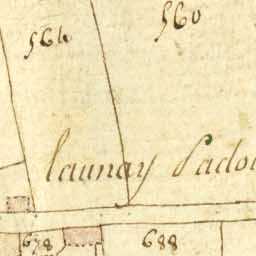 564 560
launay Pado
678 688